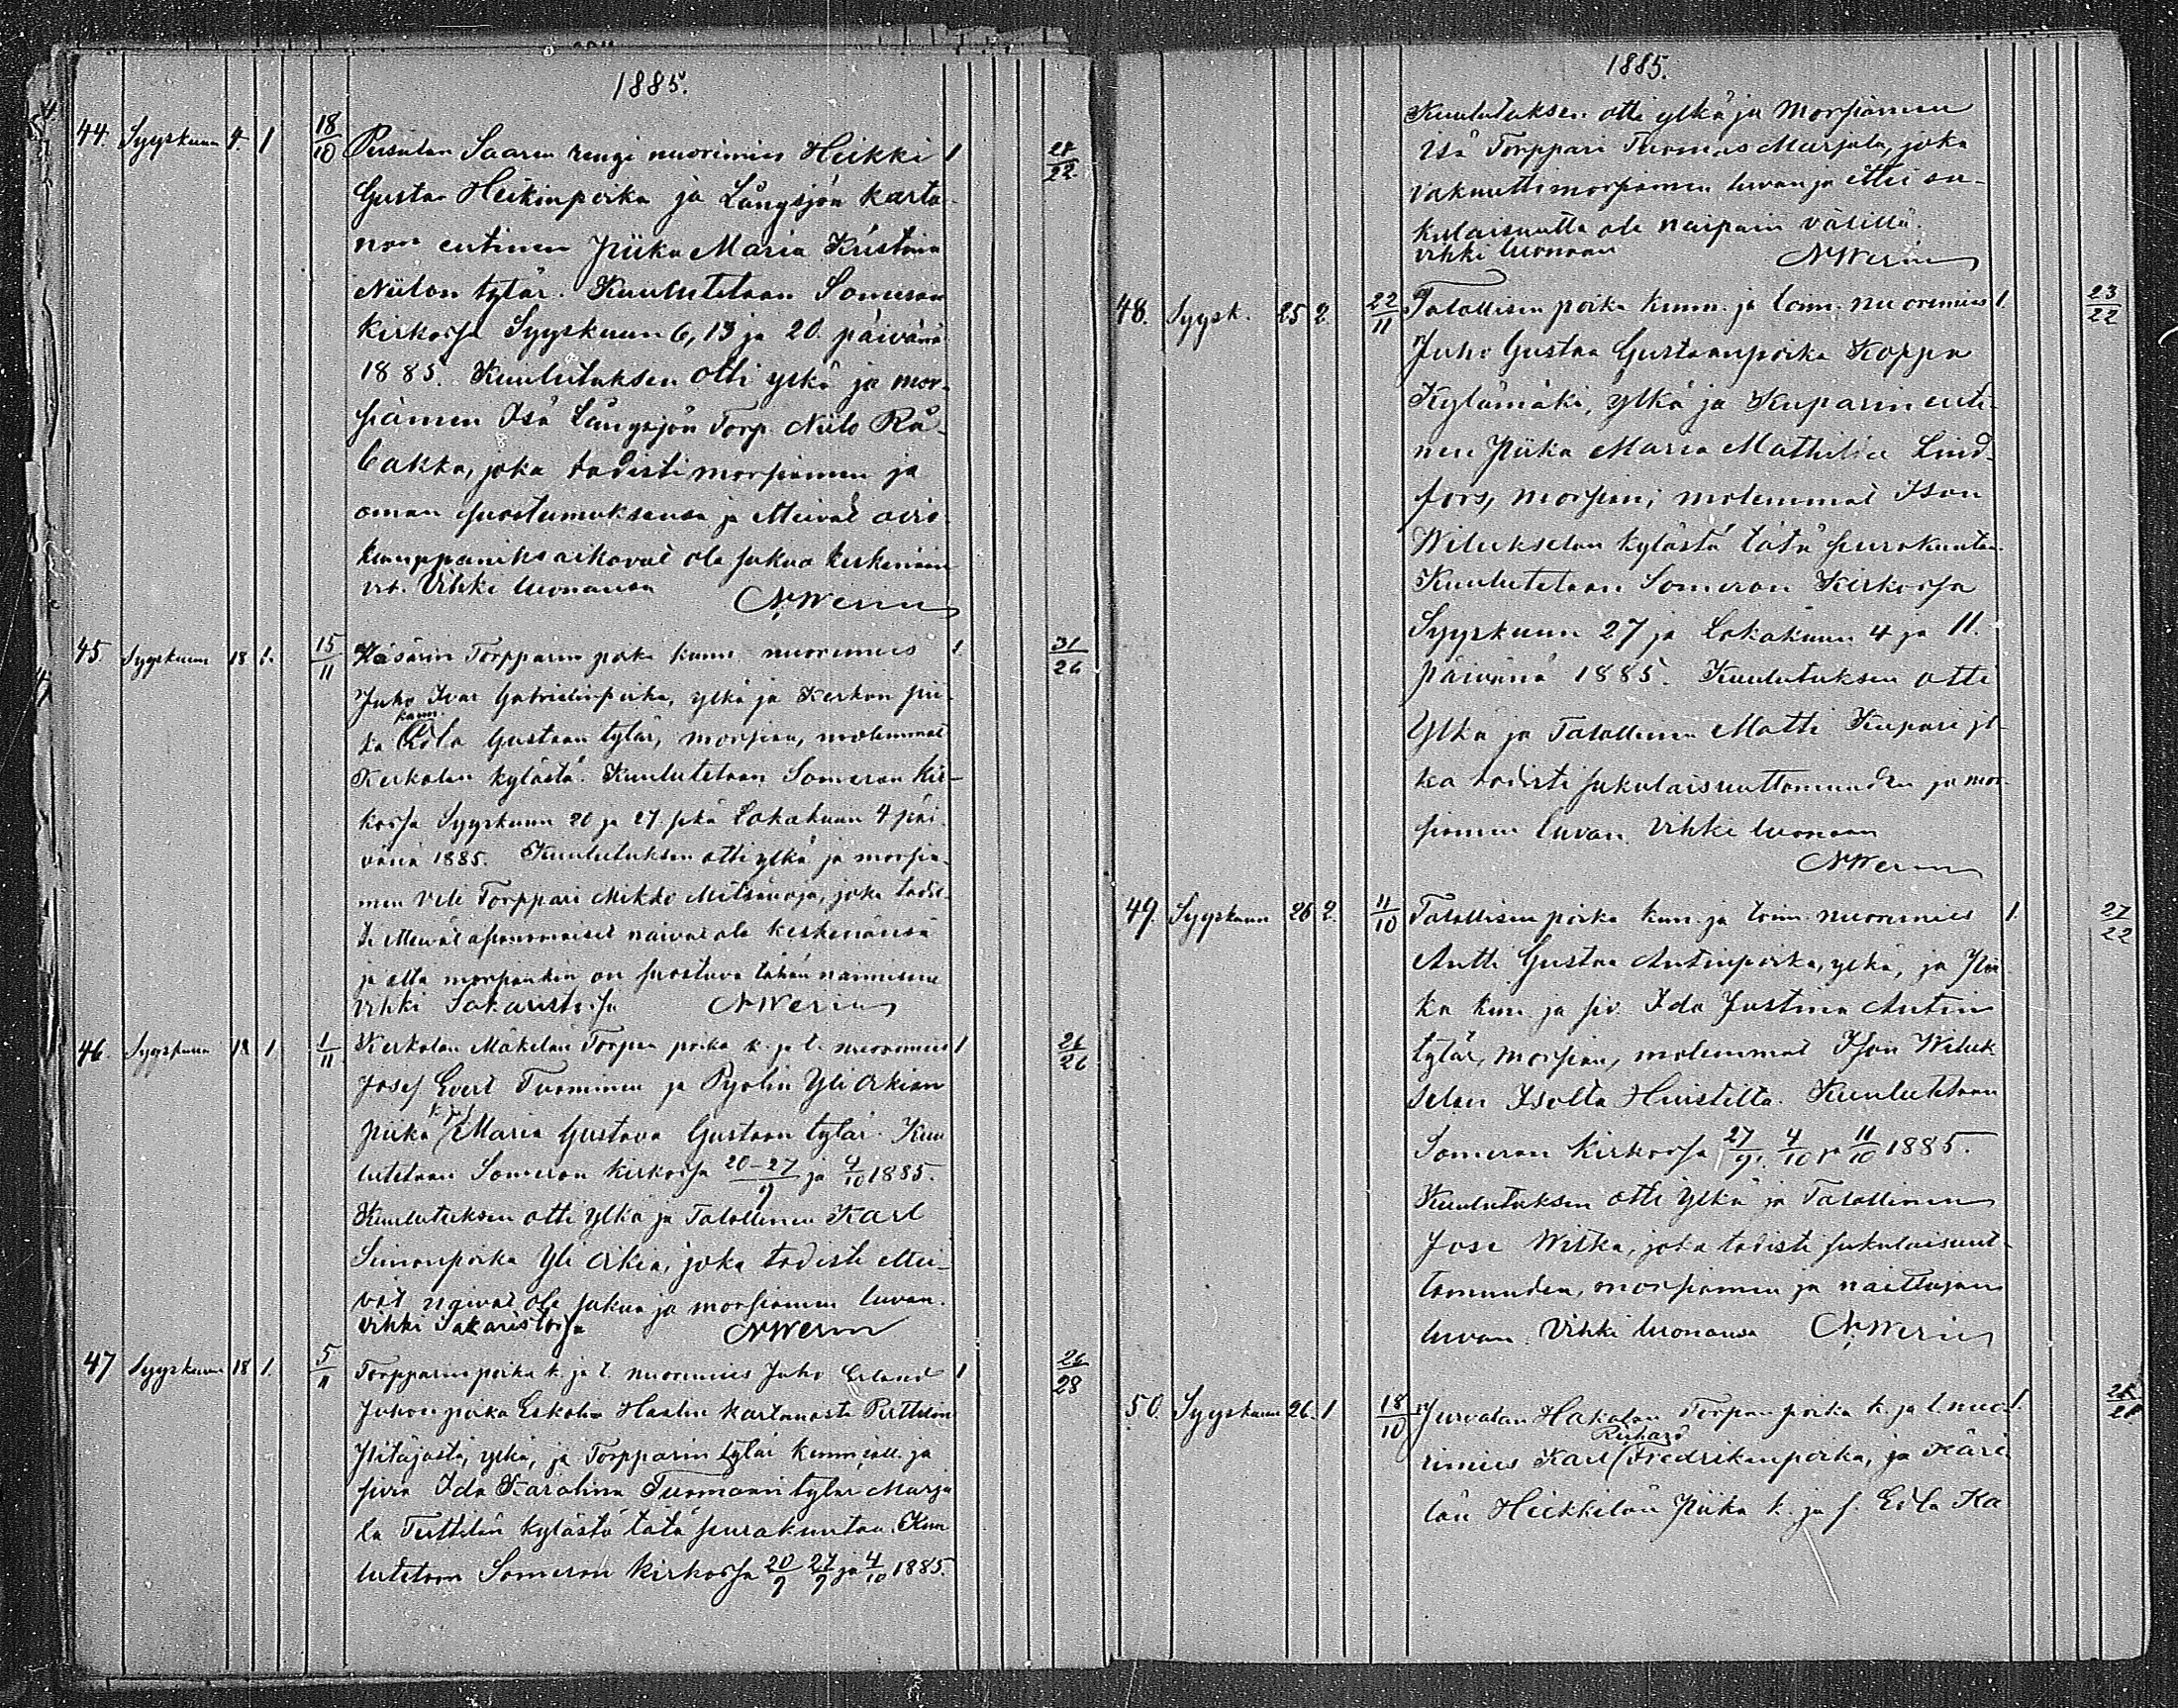 1885.
44. Syyskuun 4. 1 18/10 Saaren rengi nuorimies Heikki 1 28/22
Gustav Heikinpoika ja Långsjön karta-
non entinen piika Maria Kristiina
Niilon tytär. Kuulutetaan Someron
kirkossa Syyskuun 6, 13 ja 20 päivänä
1885. Kuulutuksen otti ylkä ja mor-
siamen Isä Långsjön Torp. Niilo Rå-
backa, joka todisti morsiamen ja
oman suostumuksensa ja etteivät avio-
kumppaniksi aikovat ole sukua keskenään
Vihki luonansa NWerin
45. Syyskuun 18 1. 15/11 Torpparin poika kunn. nuorimies 1 31/26
Juho Ivar Gabrielinpoika, ylkä ja Kerkon pii-
kunn.
ka Edla Gustaan tytär, morsian, molemmat
Kerkolan kylästä. Kuulutetaan Someron kir-
kossa Syyskuun 20 ja 27 sekä Lokakuun 4 päi-
vänä 1885. Kuulutuksen otti ylkä ja morsia-
men veli Torppari Mikko Metsänoja, joka todis-
ti etteivät asianomaiset naivat ole keskenänsä
ja että morsiankin on suostuva tähän naimiseen
Vihki Sakaristossa NWerin
46. Syyskuun 18 1 1/11 Kerkolan Mäkelän Torpan poika k. ja t. nuorimies 1 26/26
Josef Evert Tuominen ja Pyölin Yli Arkian
k. ja s.
piika Maria Gustava Gustaan tytär. Kuu
lutetaan Someron kirkossa 20-27/9 ja 4/10 1885.
Kuulutuksen otti ylkä ja Talollinen Karl
Simonpoika Yli Arkia, joka todisti ettei-
vät naivat ole sukua ja morsiamen luvan.
Vihki Sakaristossa NWerin
47 Syyskuun 18 1. 5/11 Torpparin poika k. ja t. nuorimies Juho Erland 1 26/28
Juhonpoika Eskola Haalin kartanosta Perttelin
Pitäjästä, ylkä, ja Torpparin tytär kunniall. ja
siveä Ida Karolina Tuomaan tytär Marja
la Terttilän kylästä tätä seurakuntaa. Kuu
lutetaan Someron kirkossa 20/9 27/9 ja 4/10 1885.
1885.
Kuulutuksen otti ylkä ja Morsiamen
isä Torppari Tuomas Marjala, joka
vakuutti morsiamen luvan ja ettei su-
kulaisuutta ole naipain välillä.
vihki luonaan NWerin
48. Syysk. 25 2. 22/11 Talollisen poika kunn. ja toim. nuorimies 1. 23/22
Juho Gustaa Gustaanpoika Koppa
Kylämäki, ylkä ja Kuparin enti-
nen piika Maria Mathilda Lind-
fors, morsian; molemmat Ison
Wilukselan kylästä tätä seurakuntaa.
Kuulutetaan Someron Kirkossa
Syyskuun 27 ja Lokakuun 4 ja 11.
päivänä 1885. Kuulutuksen otti
Ylkä ja Talollinen Matti Kupari jo-
ka todisti sukulaisuuttomuuden ja mor-
siamen luvan. Vihki luonaan
NWerin
49. Syyskuun 26 2. 11/10 Talollisen poika kun. ja toim. nuorimies 1. 27/22
Antti Gustaa Antinpoika, ylkä, ja Pii
ka kun. ja siv. Ida Justina Antin
tytär, morsian, molemmat Ison Wiluk
selan Isolta Huistilta. Kuulutetaan
Someron kirkossa 27/9. 4/10 ja 11/10 1885.
Kuulutuksen otti Ylkä ja Talollinen
Jose Witka, joka todisti sukulaisuut-
tomuuden, morsiamen ja naittajan
luvan. Vihki luonansa NWerin
50. Syyskuun 26. 1 18/10 Jurvalan Hakalan Torpan poika k. ja t. nuo- 1.
Richard
rimies Karl Fredrikinpoika, ja Häri-
län Heikkilän Piika k. ja s. Edla Ka